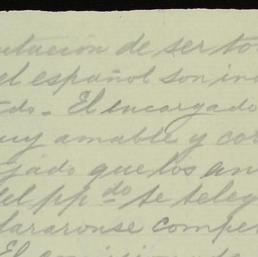 utación de ser to
el español son in
tado. El encargado
uy amable y cor
jado que los an
del ppdo se teleg
lararonse compe
El